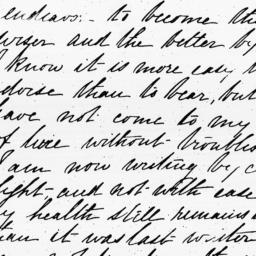 endeavor - to become th
wiser and the better by
I know it is more easy t
dorse than to bear, but
have not come to my
of live without troubles
am now writing by c
light - and not with ease
y health still remains
than it was last winter